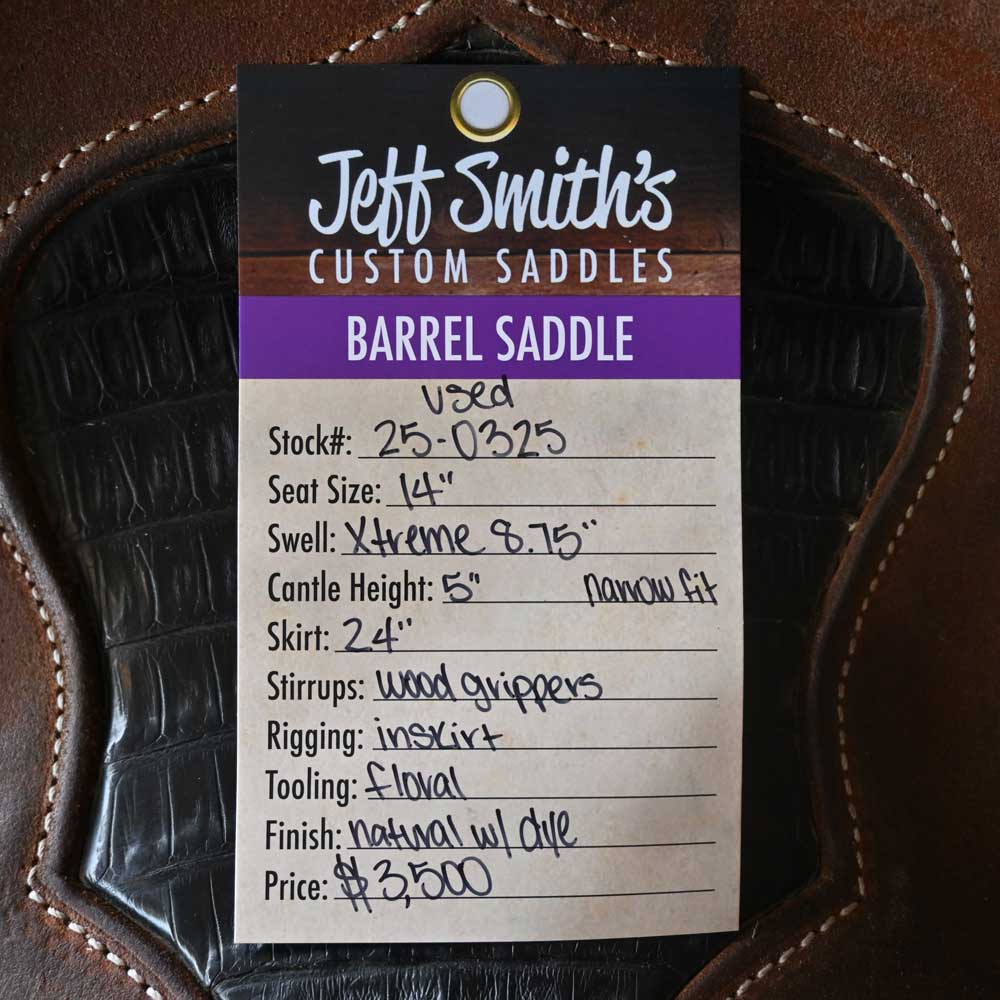 Jeff Smith's
CUSTOM SADDLES
BARREL SADDLE
used
Stock#: 25-0325
Seat Size: 14"
Swell: Xtreme 8.75"
Cantle Height: 5" narrow fit
Skirt: 24"
Stirrups: wood grippers
Rigging: inskirt
Tooling: floral
Finish: natural w/ dye
Price: $3,500